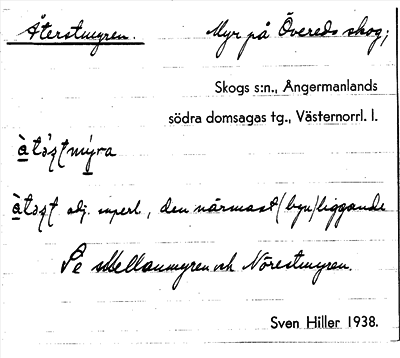 Återstmyren. Myr på Övereds skog;
Skogs s:n., Ångermanlands
södra domsagas tg., Västernorrl. l.
adj. superl., den närmast (byn) liggande
Se Mellanmyren och Nörestmyren.
Sven Hiller 1938.